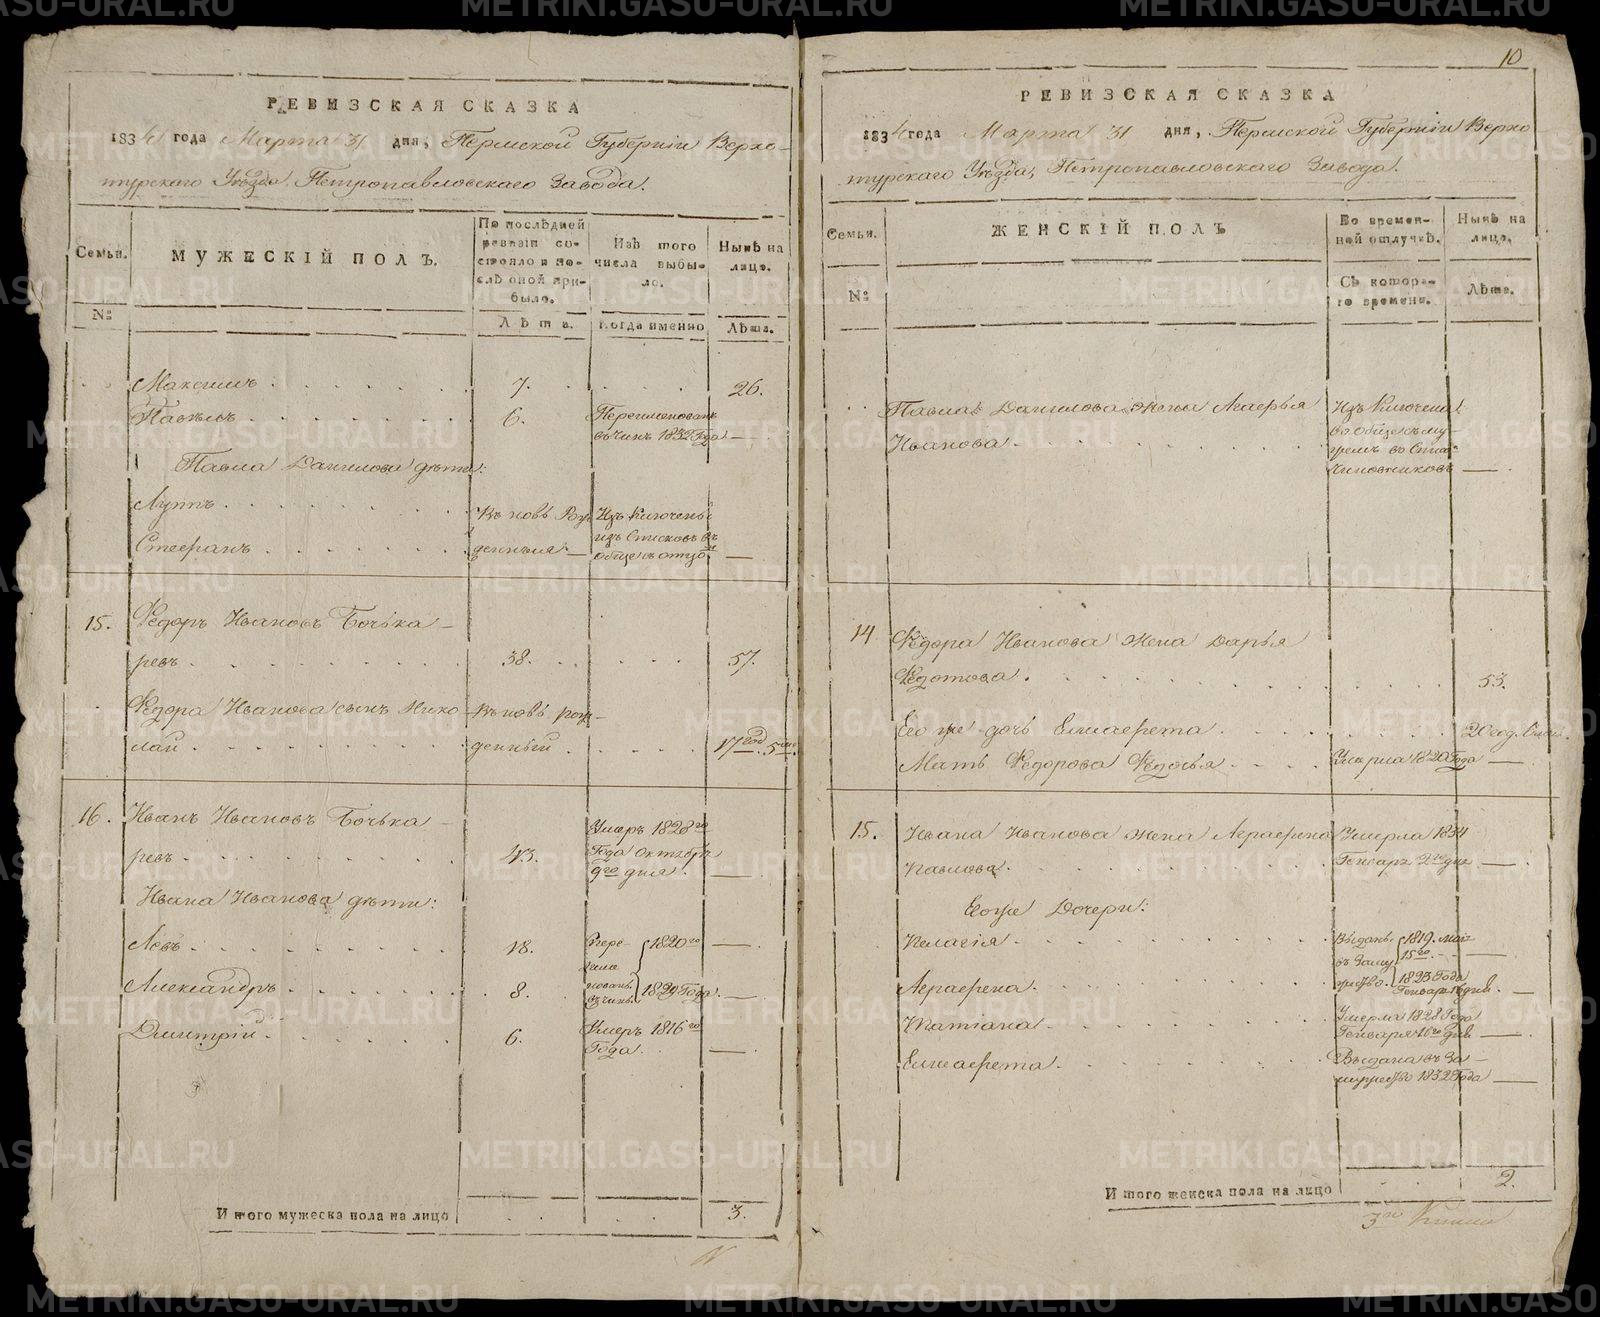 РЕВИЗСКАЯ СКАЗКА
1834 года Марта 31 дня, Пермской Губернiи Верхо-
турскаго Уѣзда, Петропавловскаго Завода.
Семьи.
№
МУЖЕСКIЙ ПОЛЪ.
По послѣдней
ревизiи со-
стояло и по-
слѣ оной при-
было.
Лѣта.
Изъ того
числа выбы-
ло.
Когда именно
Нынѣ на
лицо.
Лѣта.
Максимъ 7. 26.
Павелъ 6. Переименованъ
въ чинъ 1832 Года —
Павла Данилова дѣти:
Луппъ
Стефанъ
Въ новѣ Рож-
денныя —
Изъ Ключены
изъ Списковъ въ
обще съ отцо —
15. Ѳедоръ Ивановъ Бочька-
ревъ 38. 57.
Ѳедора Иванова сынъ Нико-
лай
въ новѣ рож-
денный
17 год. 5 мѣ.
16. Иванъ Ивановъ Бочька-
ревъ 43.
Умеръ 1828 го
Года Октября
9 го дня. —
Ивана Иванова дѣти:
Левъ 18.
Александръ 8.
Пере-
име
нованъ
въ чинъ
1820 го —
1829 Года. —
Дмитрiй 6. Умеръ 1816 го
Года. —
Итого мужеска пола на лицо 3.
10
РЕВИЗСКАЯ СКАЗКА
1834 года Марта 31 дня, Пермской Губернiи Верхо-
турскаго Уѣзда, Петропавловскаго Завода.
Семьи.
№
ЖЕНСКIЙ ПОЛЪ
Во времен-
ной отлучкѣ.
Съ которо-
го времени.
Нынѣ на
лицо.
Лѣта.
Павла Данилова жена Агафья
Иванова.
Изъ Ключена
во обще съ му-
жемъ во Спис.
чиновниковъ —
14 Ѳедора Иванова жена Дарья
Ѳедотова. 53.
Его же дочь Елисафета 20 год. 6 мѣс.
Мать Ѳедорова Ѳедосья Умерла 1820 Года —
15. Ивана Иванова жена Аграфена
Павлова.
Умерла 1834
Генваря 2 го дня —
Его же Дочери:
Пелагiя
Аграфена
Выдан.
въ Заму
жество
1819. маiя
15 го. —
1823 Года
Генваря дня. —
Татiана Умерла 1828 Года
Генваря 16 го дня —
Елисафета Выдана въ За-
мужество 1832 Года —
Итого женска пола на лицо 2.
METRIKI.GASO-URAL.RU